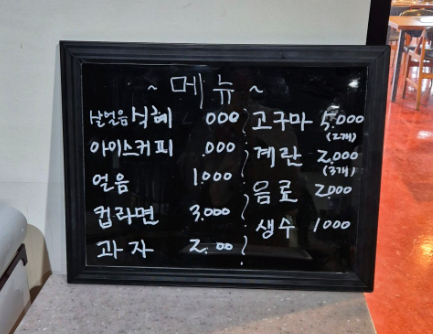 ~ 메뉴 ~
살얼음식혜 000
아이스커피 .000
얼음 1.000
컵라면 3.000
과자 2. 00
고구마 5.000
(2개)
계란 2.000
(3개)
음료 2000
생수 1000